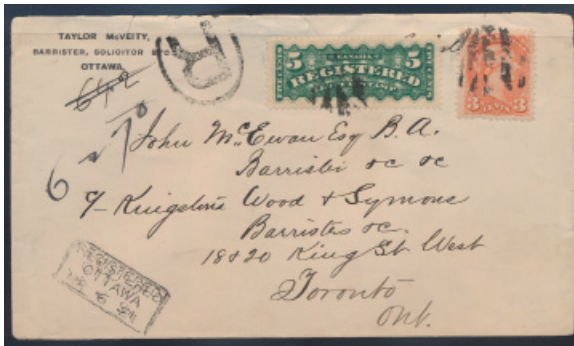 TAYLOR McVEITY,
BARRISTER, SOLICITOR
OTTAWA.
642
R
CANADA
5 REGISTERED 5
3 CENTS 3
John McEwan Esq B.A.
Barrister &c &c
c/- Kingstone Wood & Symons
Barristers &c.
18 & 20 King St West
Toronto
Ont.
REGISTERED
OTTAWA